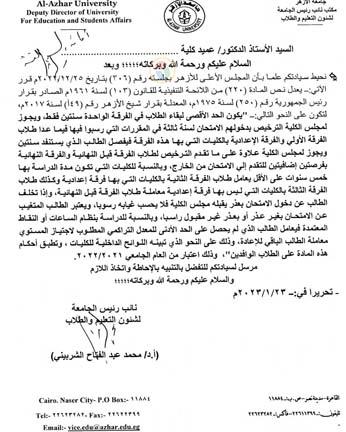 Al-Azhar University
Deputy Director of University
For Education and Students Affairs
جامعة الأزهر
مكتب نائب رئيس الجامعة
لشئون التعليم والطلاب
السيد الأستاذ الدكتور/ عميد كلية
السلام عليكم ورحمة الله وبركاته؛؛؛؛؛ وبعد
نحيط سيادتكم علما بأن المجلس الأعلى للأزهر بجلسته رقم (٣٠٦) بتاريخ ٢٠٢٢/١٢/٢٥م قرر
الآتي:- يعدل نص المادة (٢٢٠) من اللائحة التنفيذية للقانون (١٠٣) لسنة ١٩٦١م الصادر بقرار
رئيس الجمهورية رقم (٢٥٠) لسنة ١٩٧٥م، المعدلة بقرار شيخ الأزهر رقم (٤٩) لسنة ٢٠١٧م،
لتكون على النحو التالي:- "يكون الحد الأقصى لبقاء الطلاب في الفرقة الواحدة سنتين فقط، ويجوز
لمجلس الكلية الترخيص بدخولهم الامتحان لسنة ثالثة في المقررات التي رسبوا فيها فيما عدا طلاب
الفرقة الأولى والفرقة الإعدادية بالكليات التي بها هذه الفرقة فيفصل الطالب الذي يستنفد سنتين
ويجوز لمجلس الكلية علاوة على ما تقدم الترخيص لطلاب الفرقة قبل النهائية والفرقة النهائية
بفرصتين إضافيتين للتقدم إلى الامتحان من الخارج، وبالنسبة للكليات التي تكون مدة الدراسة بها
خمس سنوات على الأقل يعامل طلاب الفرقة الثانية بالكليات التي بها فرقة إعدادية وكذلك طلاب
الفرقة الثالثة بالكليات التي ليس بها فرقة إعدادية معاملة طلاب الفرقة قبل النهائية، وإذا تخلف
الطالب عن دخول الامتحان بعذر يقبله مجلس الكلية فلا يحسب غيابه رسوبا، ويعتبر الطالب المتغيب
عن الامتحان بغير عذر أو بعذر غير مقبول راسبا، وبالنسبة للدراسة بنظام الساعات أو النقاط
المعتمدة فيعامل الطالب الذي لم يحصل على الحد الأدنى للمعدل التراكمي المطلوب لاجتياز المستوى
معاملة الطالب الباقي للإعادة، وذلك على النحو الذي تبينه اللوائح الداخلية للكليات ، وتطبق أحكام
هذه المادة على الطلاب الوافدين"، وذلك اعتبار من العام الجامعي ٢٠٢٢/٢٠٢١
مرسل لسيادتكم للتفضل بالتنبيه بالإحاطة واتخاذ اللازم
والسلام عليكم ورحمة الله وبركاته؛؛؛؛؛
تحريرا في:- ٢٠٢٣/١/٢٣م
نائب رئيس الجامعة
لشئون التعليم والطلاب
(أ.د/ محمد عبد الفتاح الشربيني)
Cairo. Naser City- P.O Box:- ١١٨٨٤
Tel:- ٢٢٦٢٣٢٨٢- Fax:- ٢٢٦١١٤٢٩
Email:- vice.edu@azhar.edu.eg